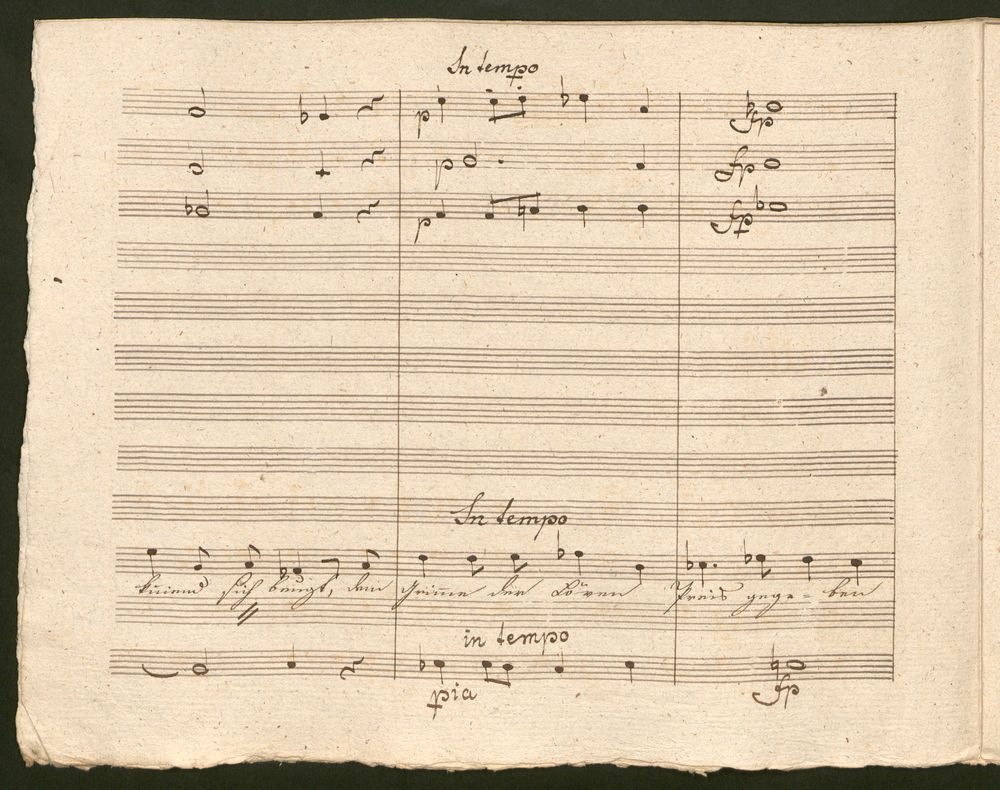 In tempo
p fp
p fp
p fp
In tempo
kniend sich beugt, dem Grimme der Löwen Preis gege- ben
in tempo
pia fp